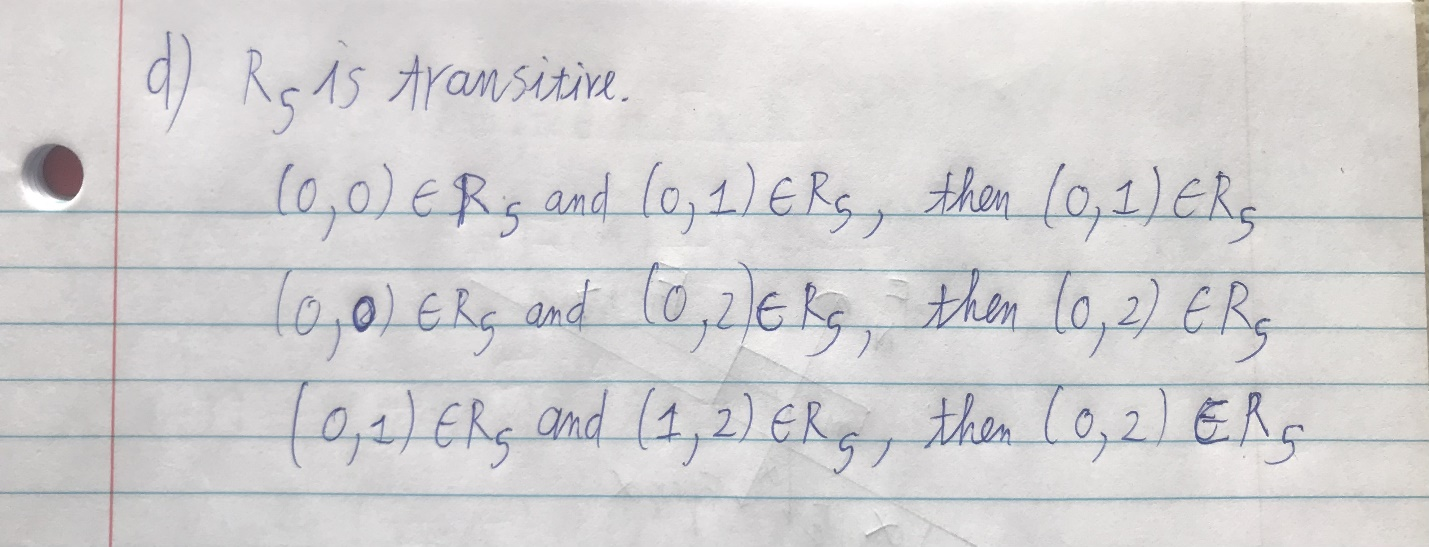 d) R₅ is transitive.
(0,0) ∈ R₅ and (0,1) ∈ R₅, then (0,1) ∈ R₅
(0,0) ∈ R₅ and (0,2) ∈ R₅, then (0,2) ∈ R₅
(0,1) ∈ R₅ and (1,2) ∈ R₅, then (0,2) ∈ R₅